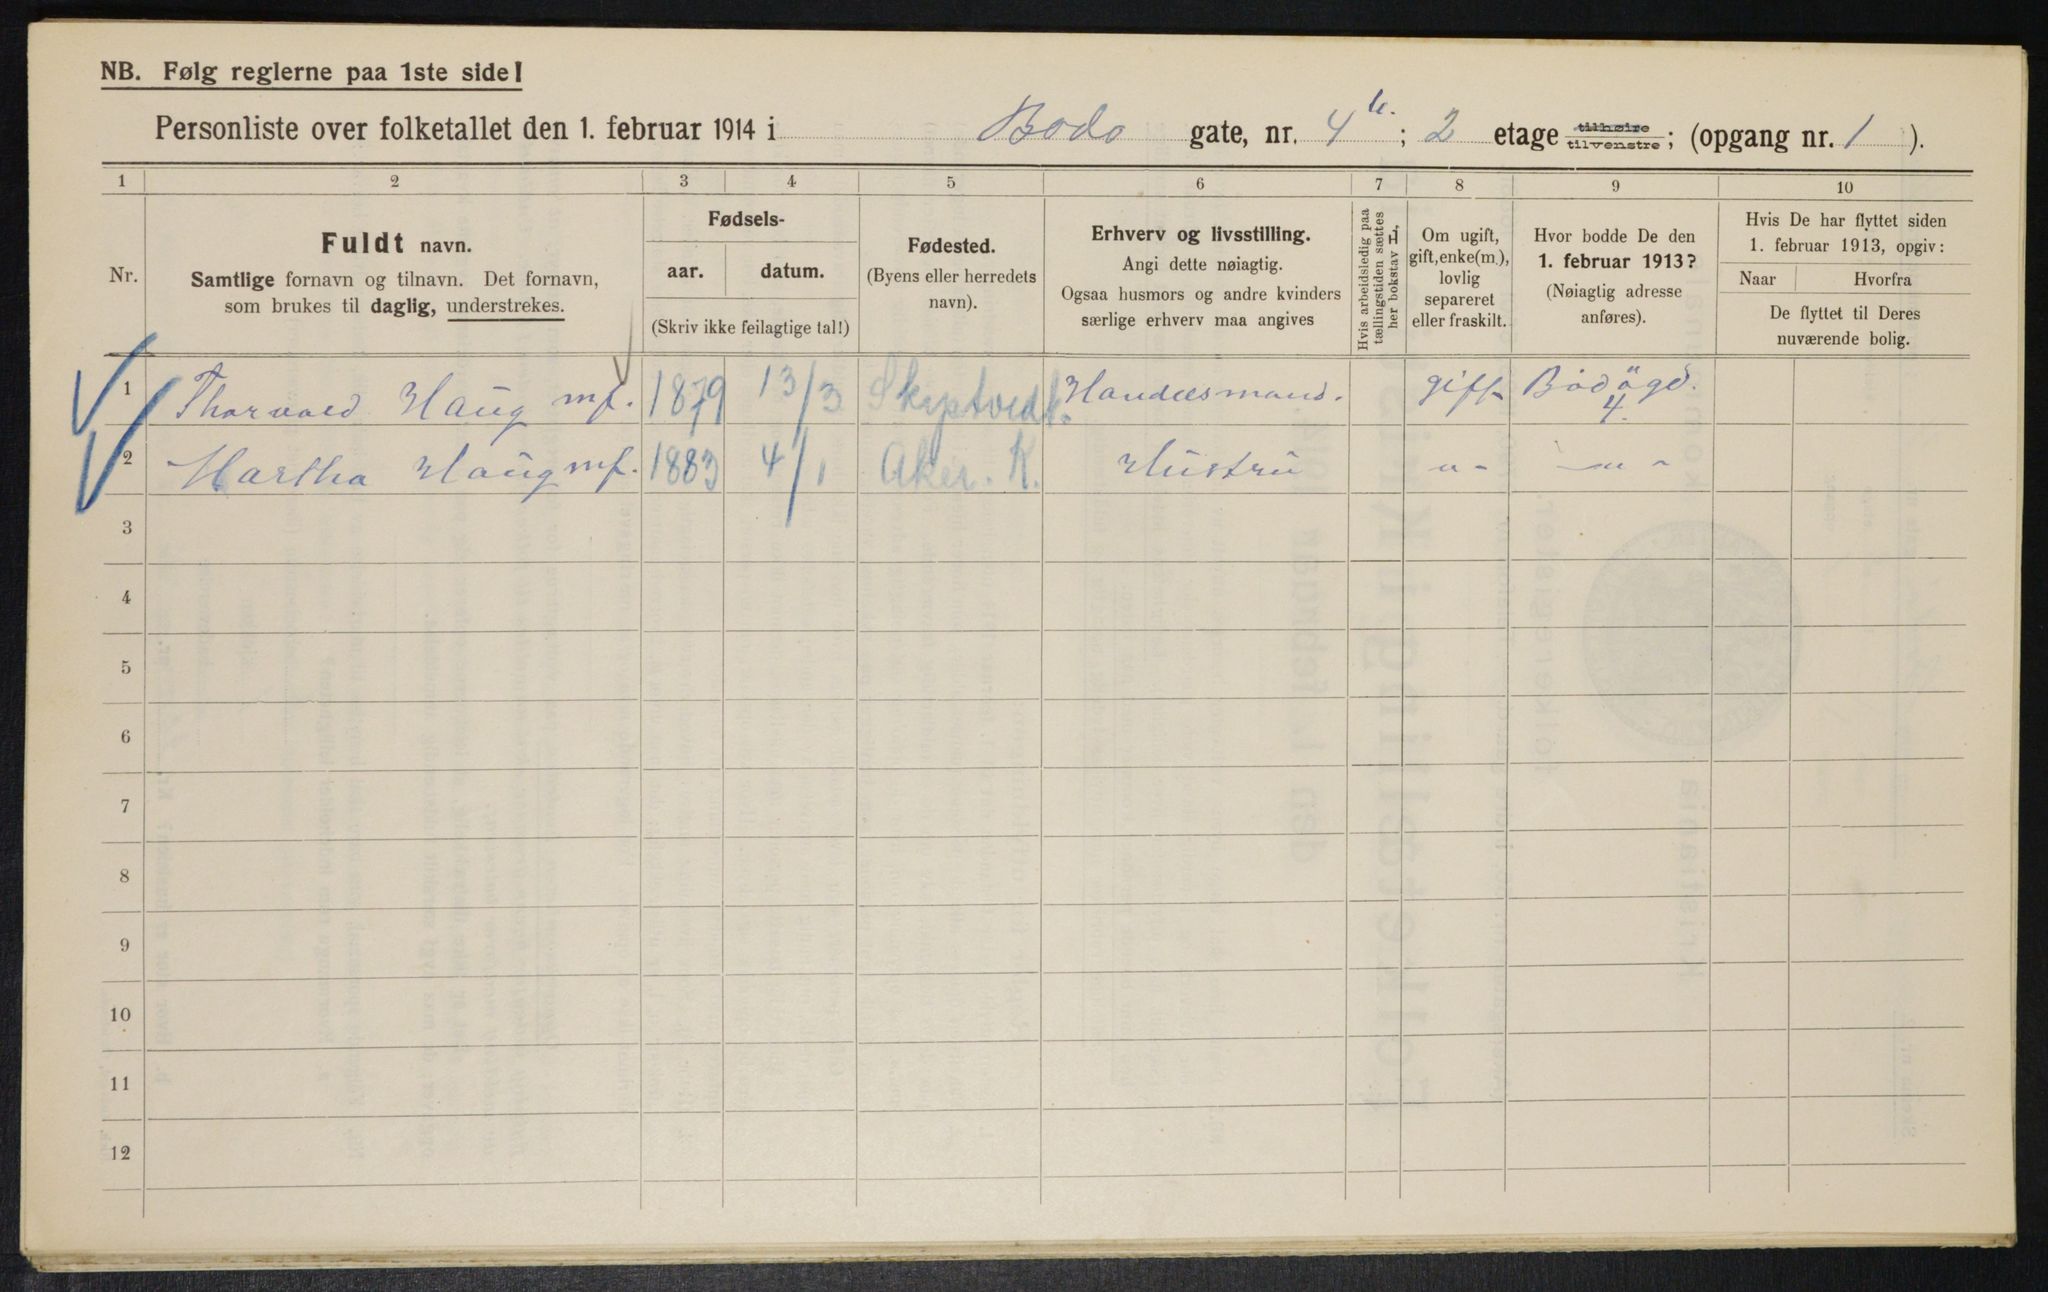 NB. Følg reglerne paa 1ste side!
Personliste over folketallet den 1. februar 1914 i Bodo gate, nr. 4 b. ; 2 etage tilhøire tilvenstre ; (opgang nr. 1 ).
1 2 3 4 5 6 7 8 9 10
Nr.
Fuldt navn.
Samtlige fornavn og tilnavn. Det fornavn,
som brukes til daglig, understrekes.
Fødsels-
aar. datum.
(Skriv ikke feilagtige tal!)
Fødested.
(Byens eller herredets
navn).
Erhverv og livsstilling.
Angi dette nøiagtig.
Ogsaa husmors og andre kvinders
særlige erhverv maa angives
Hvis arbeidsledig paa
tællingstiden sættes
her bokstav L.
Om ugift,
gift, enke(m.),
lovlig
separeret
eller fraskilt.
Hvor bodde De den
1. februar 1913?
(Nøiagtig adresse
anføres).
Hvis De har flyttet siden
1. februar 1913, opgiv:
Naar Hvorfra
De flyttet til Deres
nuværende bolig.
1 Thorvald Haug mf. 1879 13/3 Skiptvedt. Handelsmand. gift Bodögd. 4.
2 Martha Haug mf. 1883 4/1 Aker. K. Hustru -"- -"-
3
4
5
6
7
8
9
10
11
12